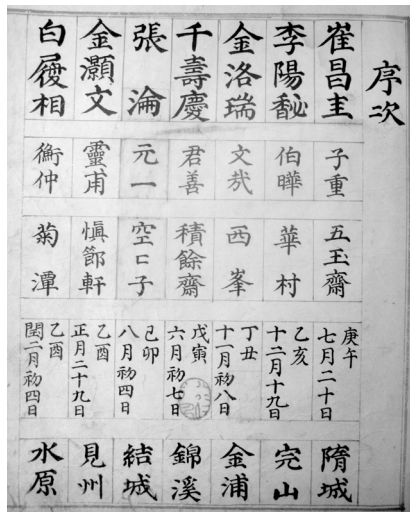 序次
崔昌圭 子重 五玉齋 庚午 七月二十日 隋城
李陽馝 伯曄 華村 乙亥 十二月十九日 完山
金洛瑞 文哉 西峯 丁丑 十一月初八日 金浦
千壽慶 君善 積餘齋 戊寅 六月初七日 錦溪
張淪 元一 空匸子 己卯 八月初四日 結城
金灝文 靈甫 愼節軒 乙酉 正月二十九日 見州
白履相 衡仲 菊潭 乙酉 閏二月初四日 水原